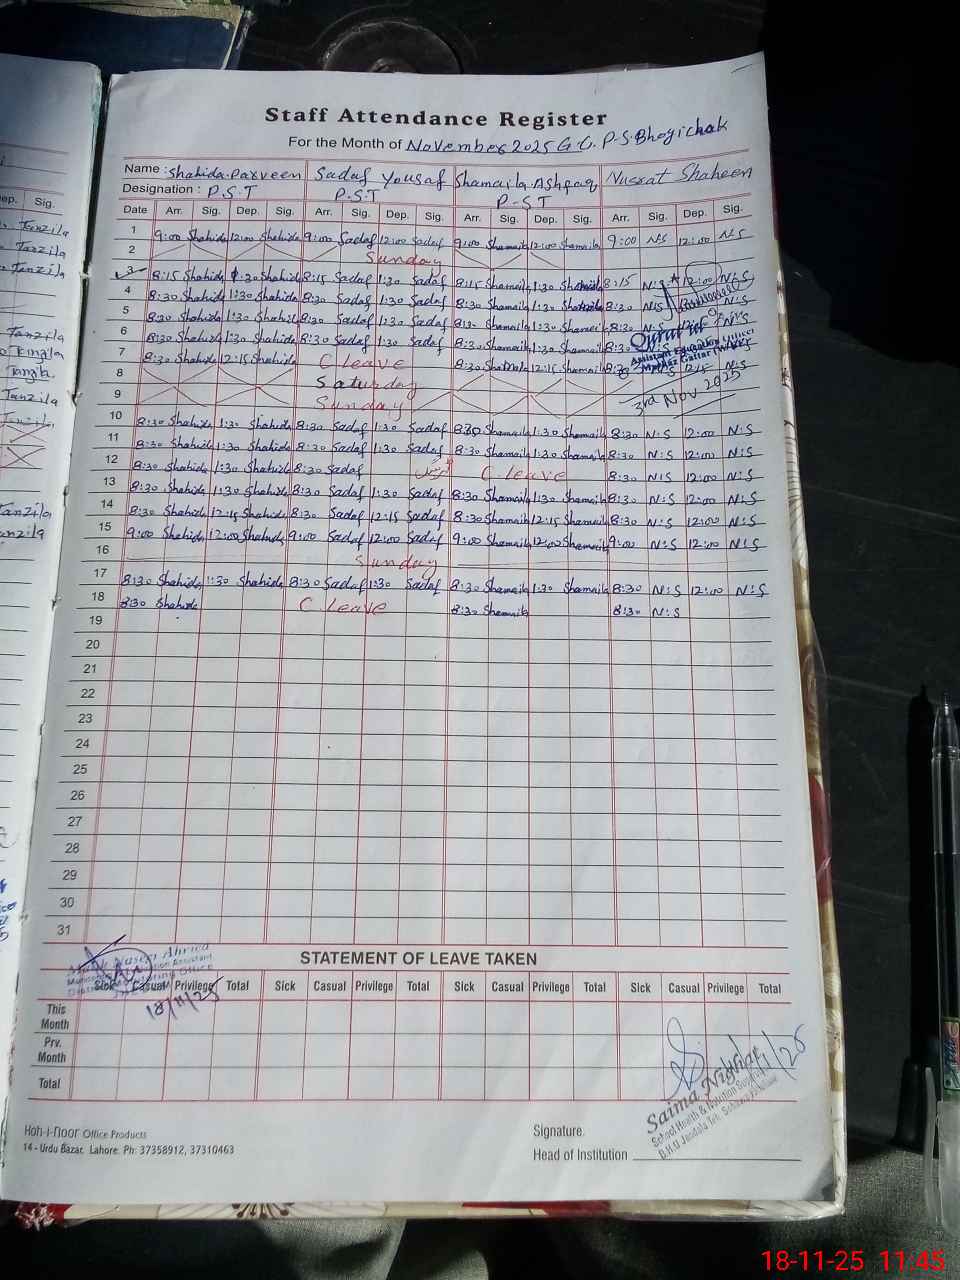 Staff Attendance Register
For the Month of November 2025 G.G.P.S Bhogichak
Name: Shahida Parveen Sadaf Yousaf Shamaila Ashfaq Nusrat Shaheen
Designation: P.S.T P.S.T P-ST
Date Arr. Sig. Dep. Sig. Arr. Sig. Dep. Sig. Arr. Sig. Dep. Sig. Arr. Sig. Dep. Sig.
1 9:00 Shahida 12:00 Shahida 9:00 Sadaf 12:00 Sadaf 9:00 Shamaila 12:00 Shamaila 9:00 N:S 12:00 N:S
2 Sunday
3 8:15 Shahida 1:30 Shahida 8:15 Sadaf 1:30 Sadaf 8:15 Shamaila 1:30 Shamaila 8:15 N:S 12:00 N:S
4 8:30 Shahida 1:30 Shahida 8:30 Sadaf 1:30 Sadaf 8:30 Shamaila 1:30 Shamaila 8:30 N:S N:S
5 8:30 Shahida 1:30 Shahida 8:30 Sadaf 1:30 Sadaf 8:30 Shamaila 1:30 Shamaila 8:30 N:S N:S
6 8:30 Shahida 1:30 Shahida 8:30 Sadaf 1:30 Sadaf 8:30 Shamaila 1:30 Shamaila 8:30
7 8:30 Shahida 12:15 Shahida C leave 8:30 Shamaila 12:15 Shamaila 8:30 N:S 12:15 N:S
Assistant Education Officer
3rd Nov 2025
8 Saturday
9 Sunday
10 8:30 Shahida 1:30 Shahida 8:30 Sadaf 1:30 Sadaf 8:30 Shamaila 1:30 Shamaila 8:30 N:S 12:00 N:S
11 8:30 Shahida 1:30 Shahida 8:30 Sadaf 1:30 Sadaf 8:30 Shamaila 1:30 Shamaila 8:30 N:S 12:00 N:S
12 8:30 Shahida 1:30 Shahida 8:30 Sadaf C leave 8:30 N:S 12:00 N:S
13 8:30 Shahida 1:30 Shahida 8:30 Sadaf 1:30 Sadaf 8:30 Shamaila 1:30 Shamaila 8:30 N:S 12:00 N:S
14 8:30 Shahida 12:15 Shahida 8:30 Sadaf 12:15 Sadaf 8:30 Shamaila 12:15 Shamaila 8:30 N:S 12:00 N:S
15 9:00 Shahida 12:00 Shahida 9:00 Sadaf 12:00 Sadaf 9:00 Shamaila 12:00 Shamaila 9:00 N:S 12:00 N:S
16 Sunday
17 8:30 Shahida 1:30 Shahida 8:30 Sadaf 1:30 Sadaf 8:30 Shamaila 1:30 Shamaila 8:30 N:S 12:00 N:S
18 8:30 Shahida C leave 8:30 Shamaila 8:30 N:S
19
20
21
22
23
24
25
26
27
28
29
30
31
STATEMENT OF LEAVE TAKEN
Sick Casual Privilege Total Sick Casual Privilege Total Sick Casual Privilege Total Sick Casual Privilege Total
18/11/25
This Month
Prv. Month
Total
Saima Nighat
School Health & Nutrition Supervisor
Hoh-i-noor Office Products
14 - Urdu Bazar, Lahore. Ph: 37358912, 37310463
Signature.
Head of Institution
Tanzila
Tanzila
Tanzila
Tanzila
Tanzila
Tanzila
Tanzila
18-11-25 11:45